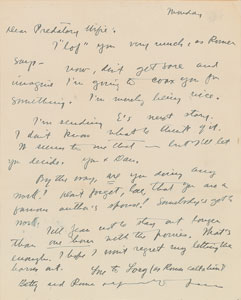 Monday
Dear Predatory Wife:
I "lof" you very much, as Romer
says - now, don't get sore and
imagine I'm going to coax you for
something. I'm merely being nice.
I'm sending E's next story.
I don't know what to think of it.
It seems to me that — but I'll let
you decide. you & Dan.
By the way, are you doing any
work? Don't forget, love, that you are a
famous author's spouse! Somebody's got to
work.
Tell your not to stay out longer
than one hour with the ponies. That's
enough. I hope I won't regret my letting the
horses out.
Love to Loren (as Romer calls him)
Betty and Romer